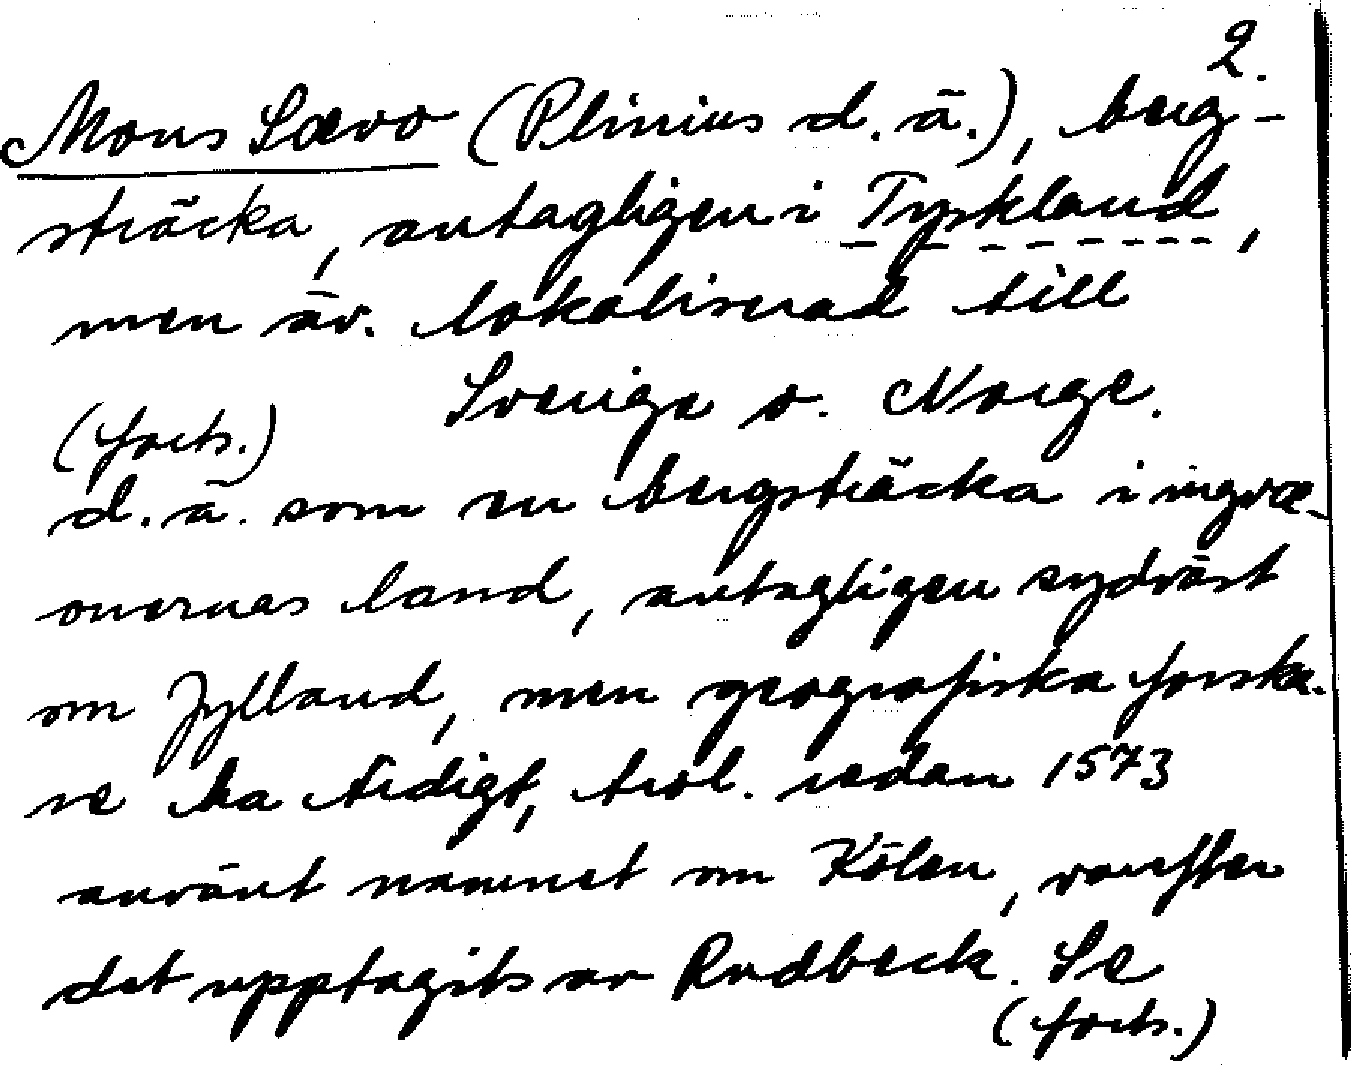 2.
Mons Sævo (Plinius d.ä.), berg-
sträcka, antagligen i Tyskland,
men äv. lokaliserad till
Sverige o. Norge.
(forts.)
d.ä. som en bergsträcka i ingvæ-
onernas land, antagligen sydväst
om Jylland, men geografiska forska-
re ha tidigt, trol. redan 1573
använt namnet om Kölen, varefter
det upptagits av Rudbeck. Se
(forts.)